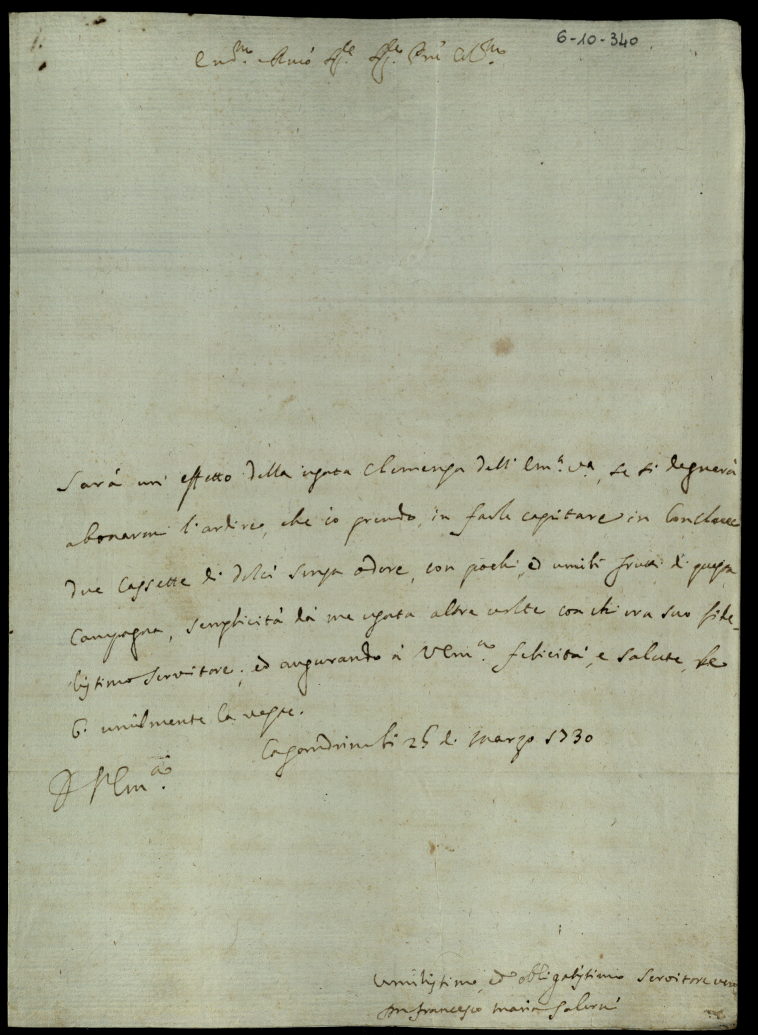 6-10-340
Sarà un' effetto della usata clemenza dell' Em.ª V.ª, se si degnerà
abonarmi l'ardire, che io prendo, in farle capitare in Conclave
due Cassette di dolci senza odore, con pochi, ed umili frutti di questa
Campagna, semplicità dà me usata altre volte con chi era suo fide-
lissimo servitore; ed augurando à V. Em.ª felicità, e salute, le
b. umilmente la veste.
25 di Marzo 1730
D V. Em.ª
Umilissimo, ed obbligatissimo servitore vero
Francesco Maria Salerni